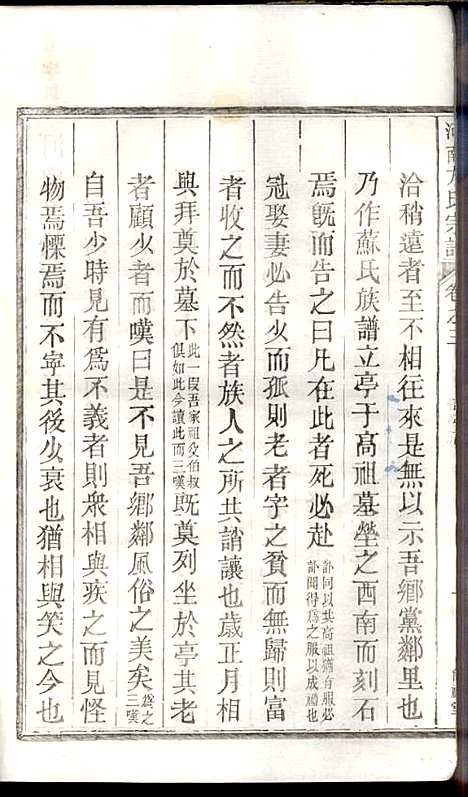 洽稍遠者至不相往來是無以示吾鄉黨鄰里也
乃作蘇氏族譜立亭于高祖墓塋之西南而刻石
焉旣而告之曰凡在此者死必赴訃同以其高祖猶有服必訃聞得爲之服以成禮也
冠娶妻必告少而孤則老者字之貧而無歸則富
者收之而不然者族人之所共誚讓也歲正月相
與拜奠於墓下此一叚吾家祖父伯叔俱如此今讀此而三嘆旣奠列坐於亭其老
者顧少者而嘆曰是不見吾鄉鄰風俗之美矣爲之三嘆
自吾少時見有爲不義者則衆相與疾之而見怪
物焉慄焉而不寧其後少衰也猶相與笑之今也